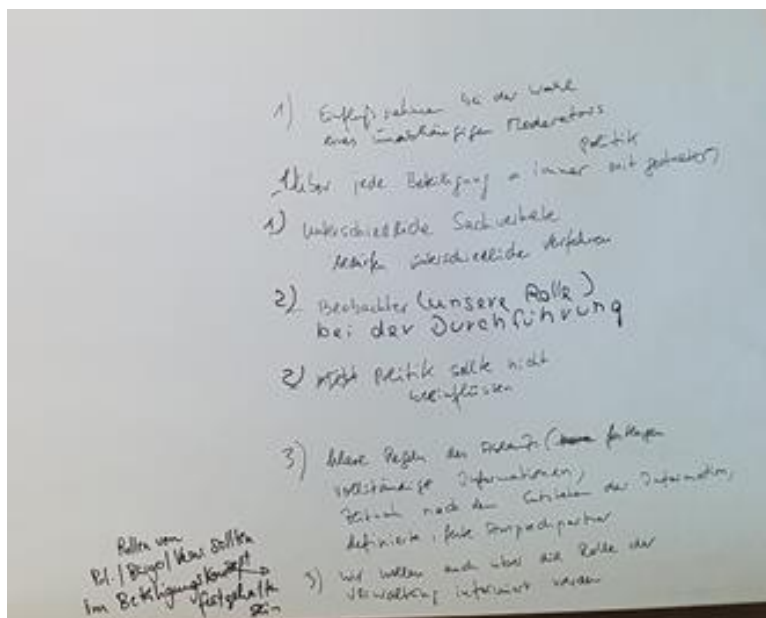 1) Einflußnahme bei der Wahl
eines unabhängigen Moderators
1) über jede Beteiligung immer mit
Politik
1) Unterschiedliche Sachverhalte
unterschiedliche Verfahren
2) Beobachter (unsere Rolle)
bei der Durchführung
2) Politik sollte nicht
beeinflussen
3) klare Regeln des festlegen
vollständige Informationen,
nach dem der Information,
definierte, feste Ansprechpartner
3) wir wollen auch über die Rolle der
Verwaltung informiert werden
Rollen von
Pol. / Bürger / Verw. sollten
im Beteiligungskonzept
festgehalten
sein